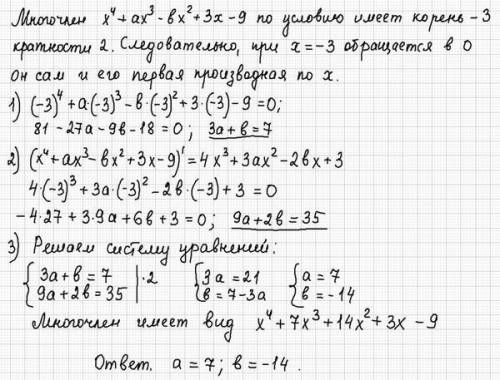 Многочлен x⁴+ax³-вx²+3x-9 по условию имеет корень -3
кратности 2. Следовательно, при x=-3 обращается в 0
он сам и его первая производная по x.
1) (-3)⁴+a·(-3)³-в·(-3)²+3·(-3)-9=0;
81-27a-9в-18=0; 3a+в=7
2) (x⁴+ax³-вx²+3x-9)'=4x³+3ax²-2вx+3
4·(-3)³+3a·(-3)²-2в·(-3)+3=0
-4·27+3·9a+6в+3=0; 9a+2в=35
3) Решаем систему уравнений:
{3a+в=7 |·2 {3a=21 {a=7
{9a+2в=35 | {в=7-3a {в=-14
Многочлен имеет вид x⁴+7x³+14x²+3x-9
Ответ. a=7; в=-14.